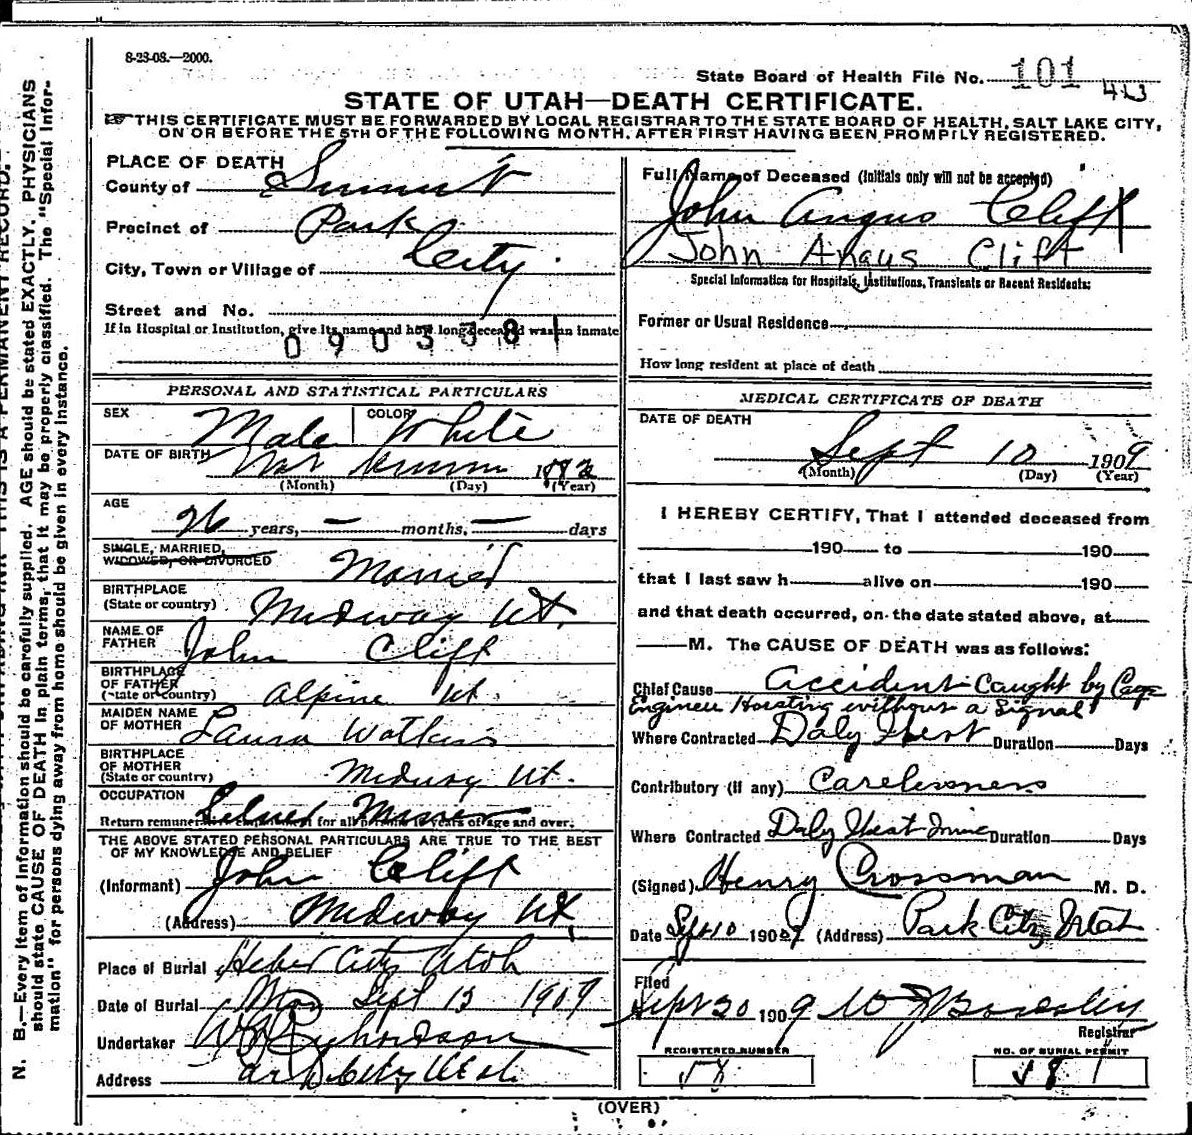 8-23-08.—2000.
State Board of Health File No. 101
413
STATE OF UTAH—DEATH CERTIFICATE.
THIS CERTIFICATE MUST BE FORWARDED BY LOCAL REGISTRAR TO THE STATE BOARD OF HEALTH, SALT LAKE CITY,
ON OR BEFORE THE 5TH OF THE FOLLOWING MONTH, AFTER FIRST HAVING BEEN PROMPTLY REGISTERED.
PLACE OF DEATH
County of Summit
Precinct of Park
City, Town or Village of City
Street and No.
If in Hospital or Institution, give its name and how long deceased was an inmate
0903381
PERSONAL AND STATISTICAL PARTICULARS
SEX Male COLOR White
DATE OF BIRTH Not known
(Month) (Day) (Year)
AGE
26 years, — months, — days
SINGLE, MARRIED,
WIDOWED, OR DIVORCED Married
BIRTHPLACE
(State or country) Midway Ut.
NAME OF
FATHER John Clift
BIRTHPLACE
OF FATHER
(State or country) Alpine Ut.
MAIDEN NAME
OF MOTHER Laura Watkins
BIRTHPLACE
OF MOTHER
(State or country) Midway Ut.
OCCUPATION Miner
Return remunerative employment for all persons 10 years of age and over.
THE ABOVE STATED PERSONAL PARTICULARS ARE TRUE TO THE BEST
OF MY KNOWLEDGE AND BELIEF
(Informant) John Clift
(Address) Midway Ut.
Place of Burial Heber City Utah
Date of Burial Sept 13 1909
Undertaker Richardson
Address Park City Utah
Full Name of Deceased (Initials only will not be accepted)
John Angus Clift
John Angus Clift
Special Information for Hospitals, Institutions, Transients or Recent Residents:
Former or Usual Residence
How long resident at place of death
MEDICAL CERTIFICATE OF DEATH
DATE OF DEATH
Sept 10 1909
(Month) (Day) (Year)
I HEREBY CERTIFY, That I attended deceased from
190 to 190
that I last saw h alive on 190
and that death occurred, on the date stated above, at
M. The CAUSE OF DEATH was as follows:
Chief Cause Accident Caught by Cage
Engineer Hoisting without a Signal
Where Contracted Daly West Duration Days
Contributory (if any) Carelessness
Where Contracted Daly West Mine Duration Days
(Signed) Henry Crossman M. D.
Date Sept 10 1909 (Address) Park City, Utah
Filed
Sept 30 1909
Registrar
REGISTERED NUMBER
58
NO. OF BURIAL PERMIT
581
(OVER)
N. B.—Every item of Information should be carefully supplied. AGE should be stated EXACTLY. PHYSICIANS
should state CAUSE OF DEATH in plain terms, that it may be properly classified. The "Special Infor-
mation" for persons dying away from home should be given in every instance.
THIS IS A PERMANENT RECORD.